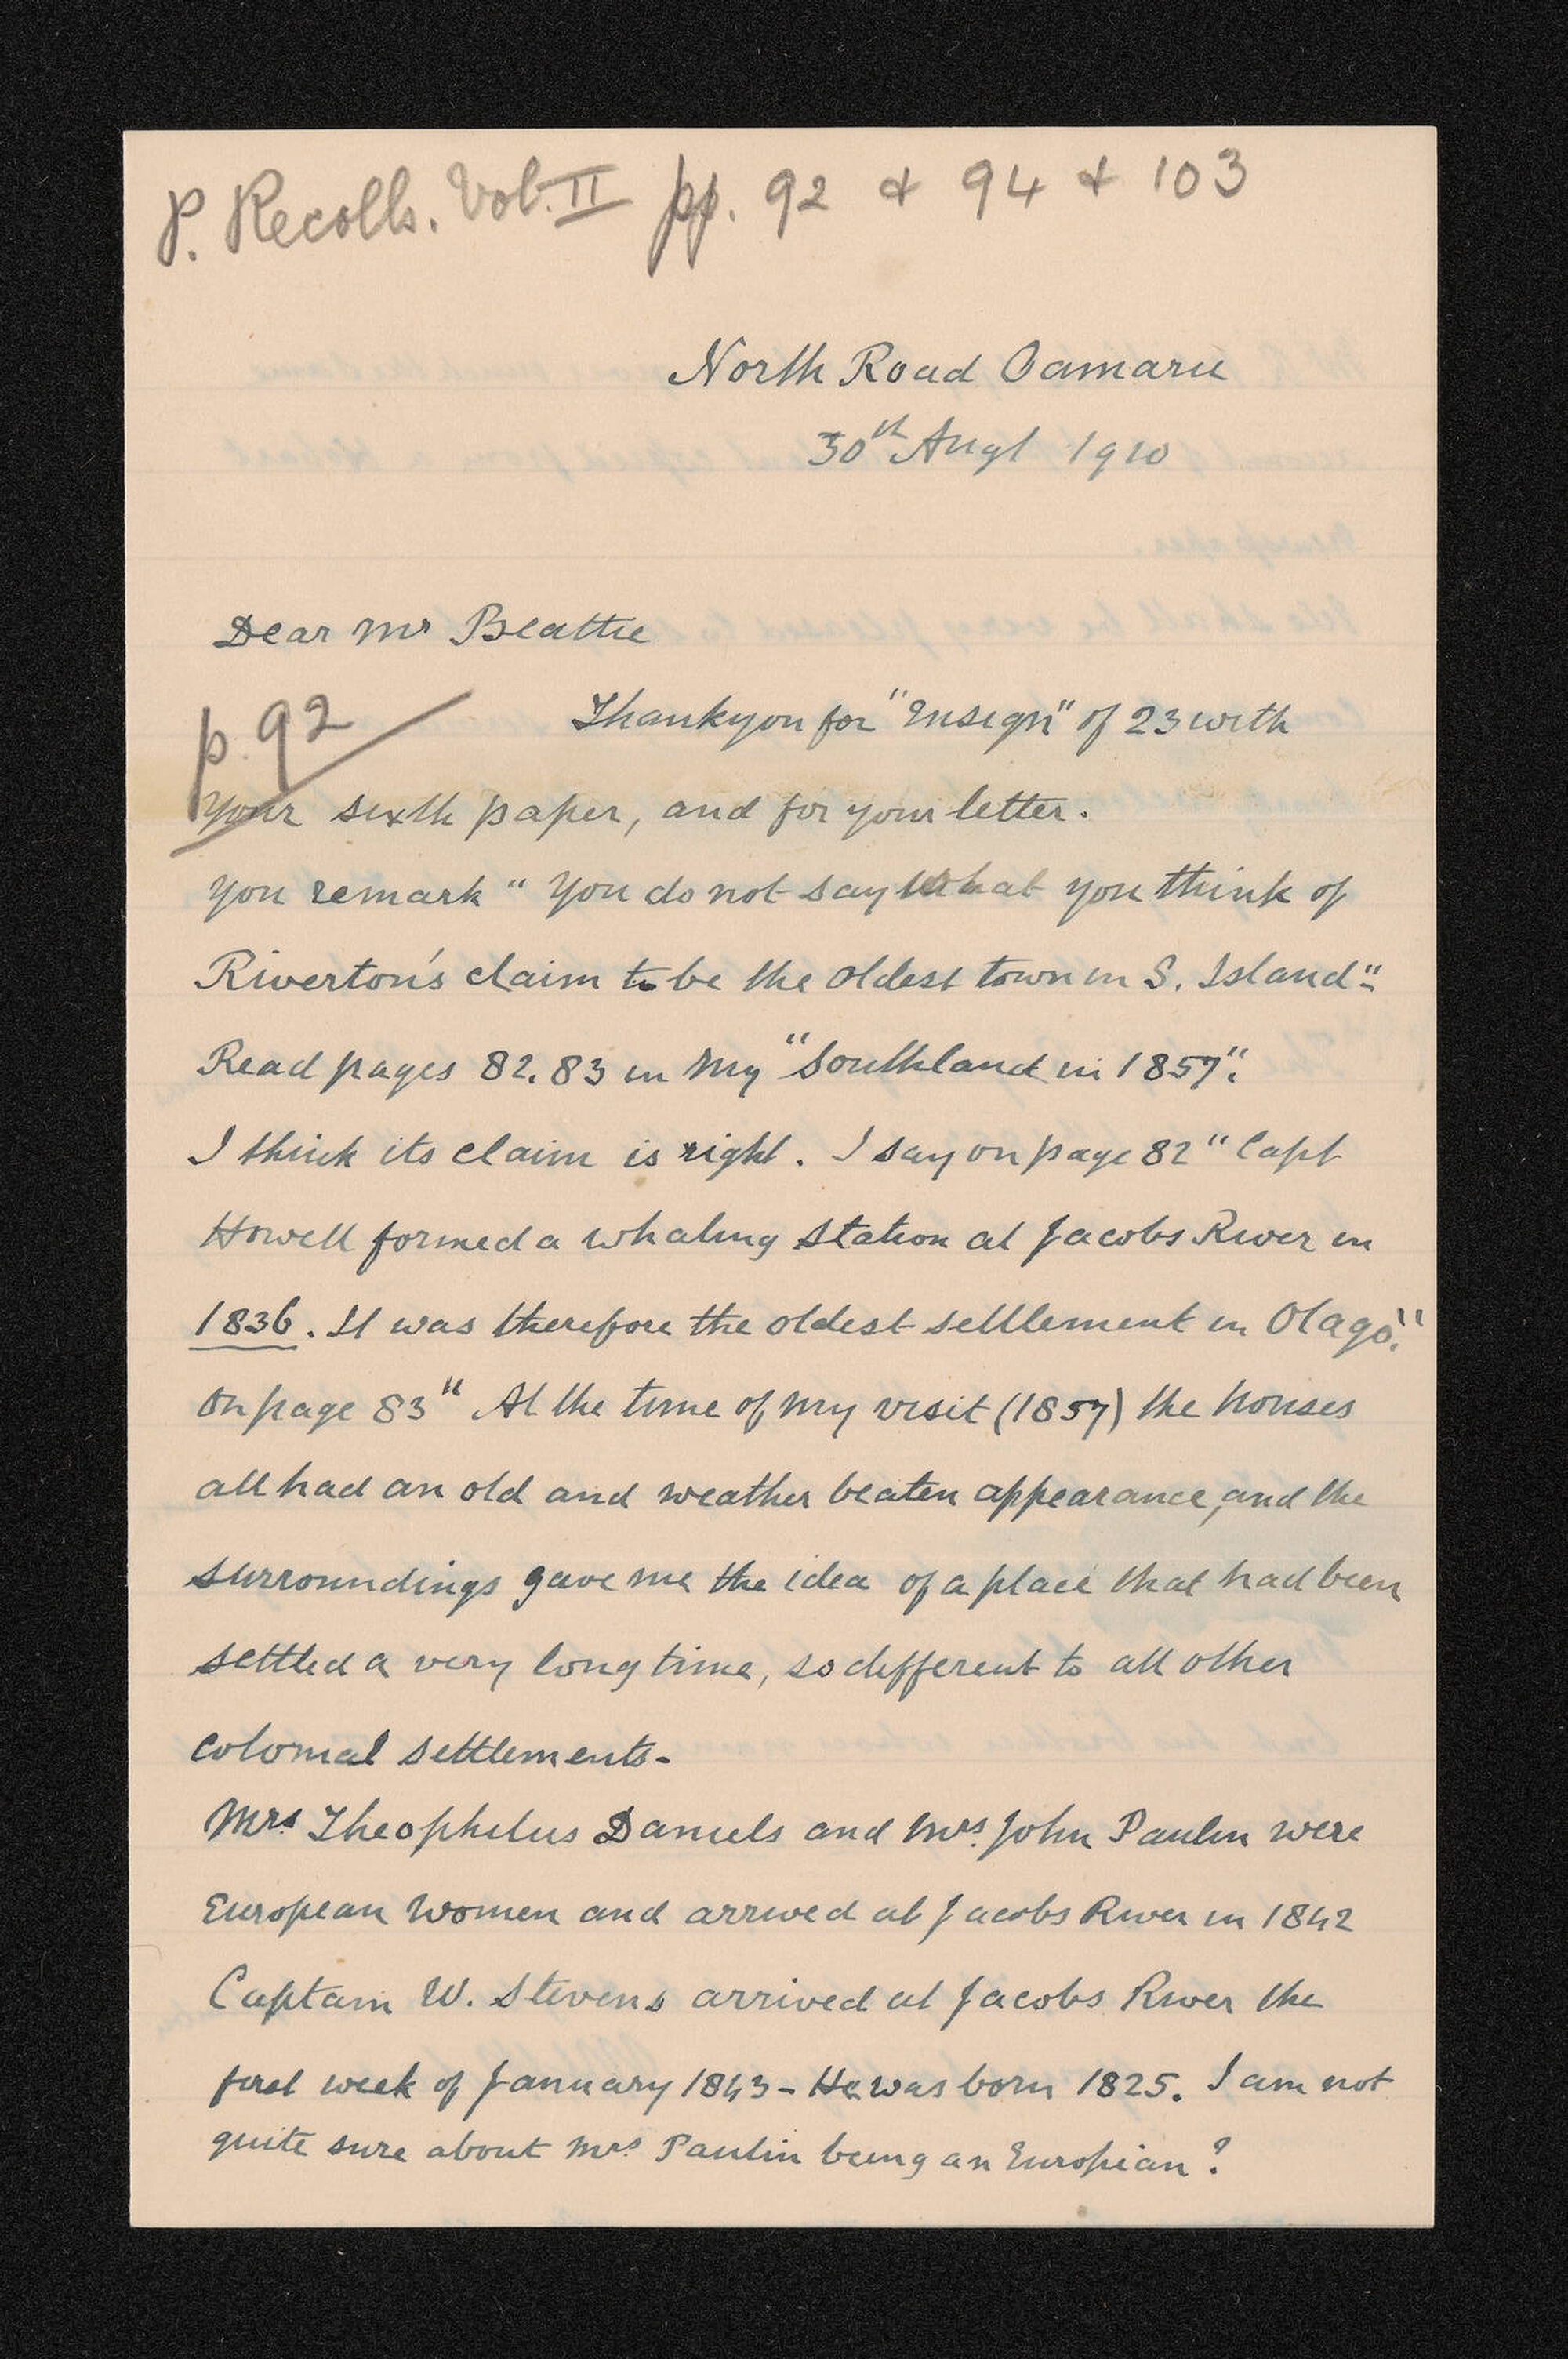 P. Recolls. Vol. II pp. 92 & 94 & 103
North Road Oamaru
30th Augt 1910
Dear Mr Beattie
p. 92
Thankyou for "Ensign" of 23 with
your sixth paper, and for your letter.
you remark "You do not say what you think of
Riverton's claim to be the oldest town in S. Island"
Read pages 82. 83 in my "Southland in 1857".
I think its claim is right. I say on page 82 "Capt
Howell formed a whaling station at Jacobs River in
1836. It was therefore the oldest settlement in Otago."
On page 83 "At the time of my visit (1857) the houses
all had an old and weather beaten appearance, and the
surroundings gave me the idea of a place that had been
settled a very long time, so different to all other
colonial settlements-
Mrs Theophilus Daniels and Mrs. John Paulin were
European Women and arrived at Jacobs River in 1842
Captain W. Stevens arrived at Jacobs River the
first week of January 1843 - He was born 1825. I am not
quite sure about Mrs Paulin being an Europian?